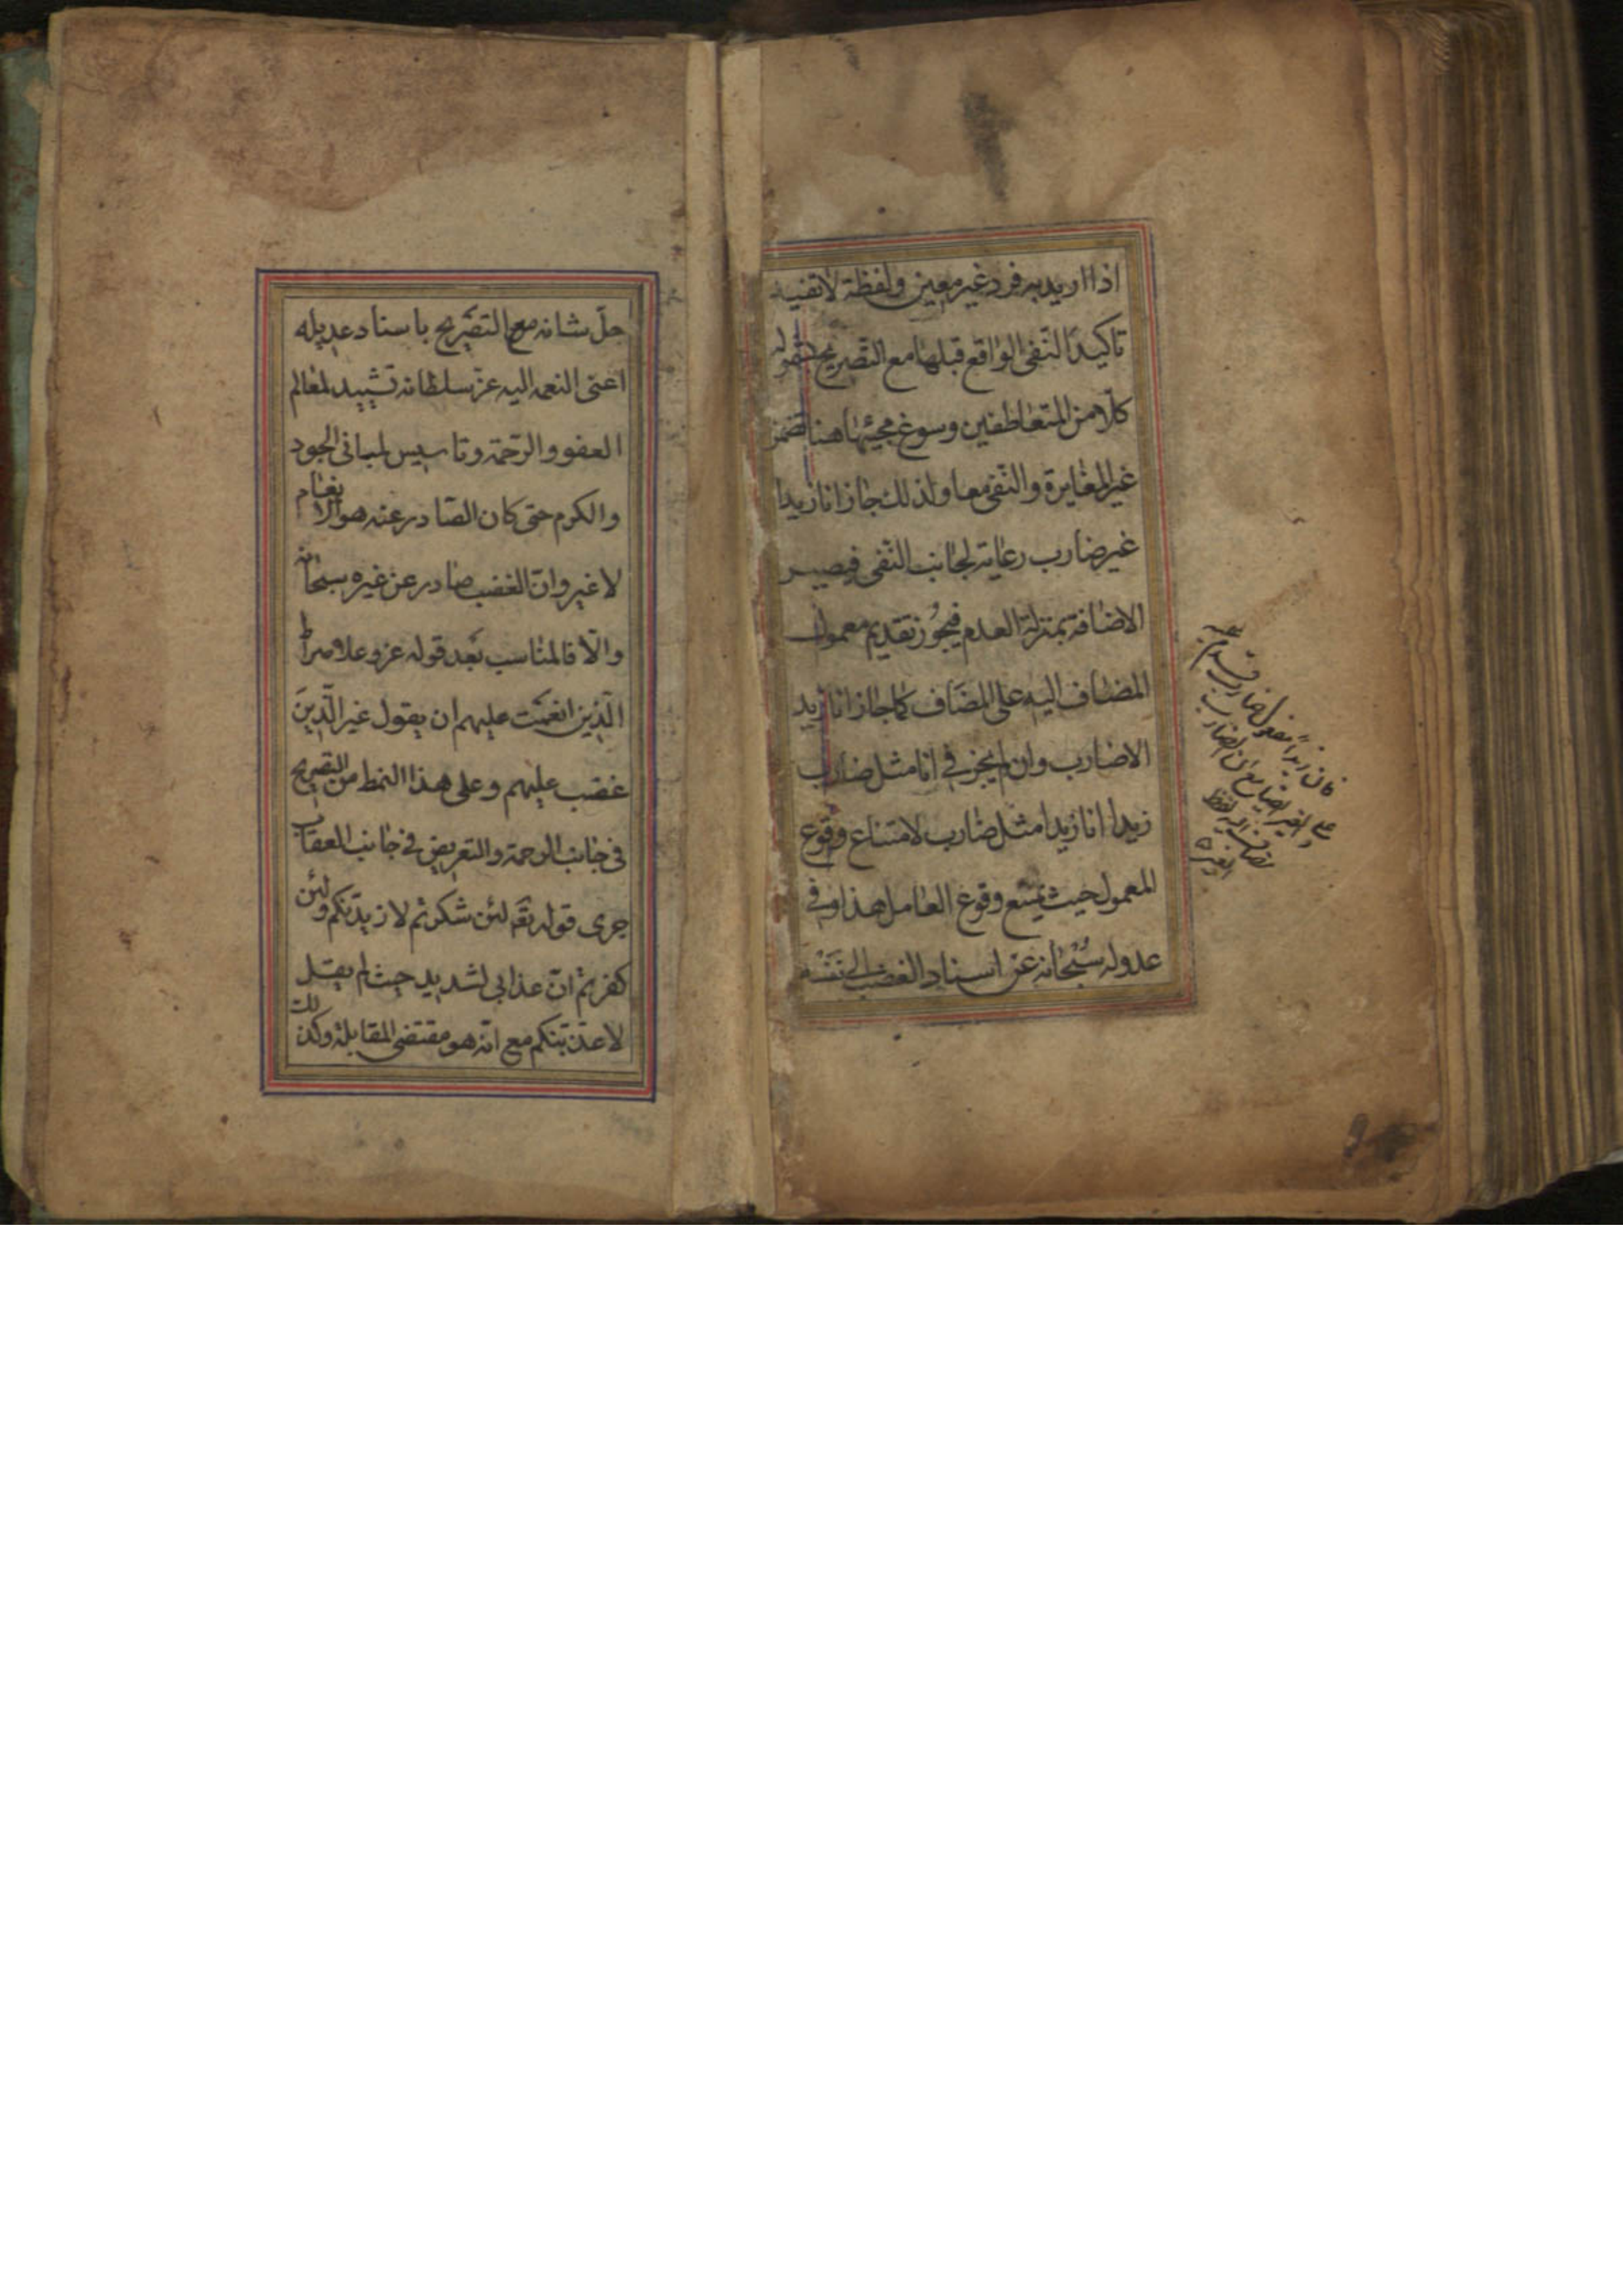 اذا اريد به فرد غير معين ولفظة لا تفيد
تاكيد النفى الواقع قبلها مع التصريح بشموله
كلا من المتعاطفين وسوغ مجيئها هنا تضمن
غير المغايرة والنفى معا ولذلك جاز انا زيدا
غير ضارب رعاية لجانب النفى فيصير
الاضافة بمنزلة العدم فيجوز تقديم معمول
المضاف اليه على المضاف كما جاز انا زيد
الا ضارب وان لم يجز فى انا مثل ضارب
زيدا انا زيدا مثل ضارب لامتناع وقوع
المعمول حيث يمتنع وقوع العامل هذا وفى
عدوله سبحانه عن اسناد الغضب الى نفسه
فان زيداً مفعول ضارب قدم
جلّ شانه مع التصريح باسناد عديله
اعنى النعمه اليه عزّ سلطانه تشييد لمعالم
العفو والرحمة وتاسيس لمبانى الجود
والكرم حتى كان الصادر عنه هو الانعام
لا غير وانّ الغضب صادر عن غيره سبحانه
والّا فالمناسب بعد قوله عز وعلا صراط
الّذين انعمت عليهم ان يقول غير الّذين
غضبت عليهم وعلى هذا النمط من التصريح
فى جانب الرحمة والتعريض فى جانب العقاب
جرى قوله تعه لئن شكرتم لازيدنّكم ولئن
كفرتم انّ عذابى لشديد حيث لم يقل
لاعذّبنكم مع انّه هو مقتضى المقابلة وكذلك